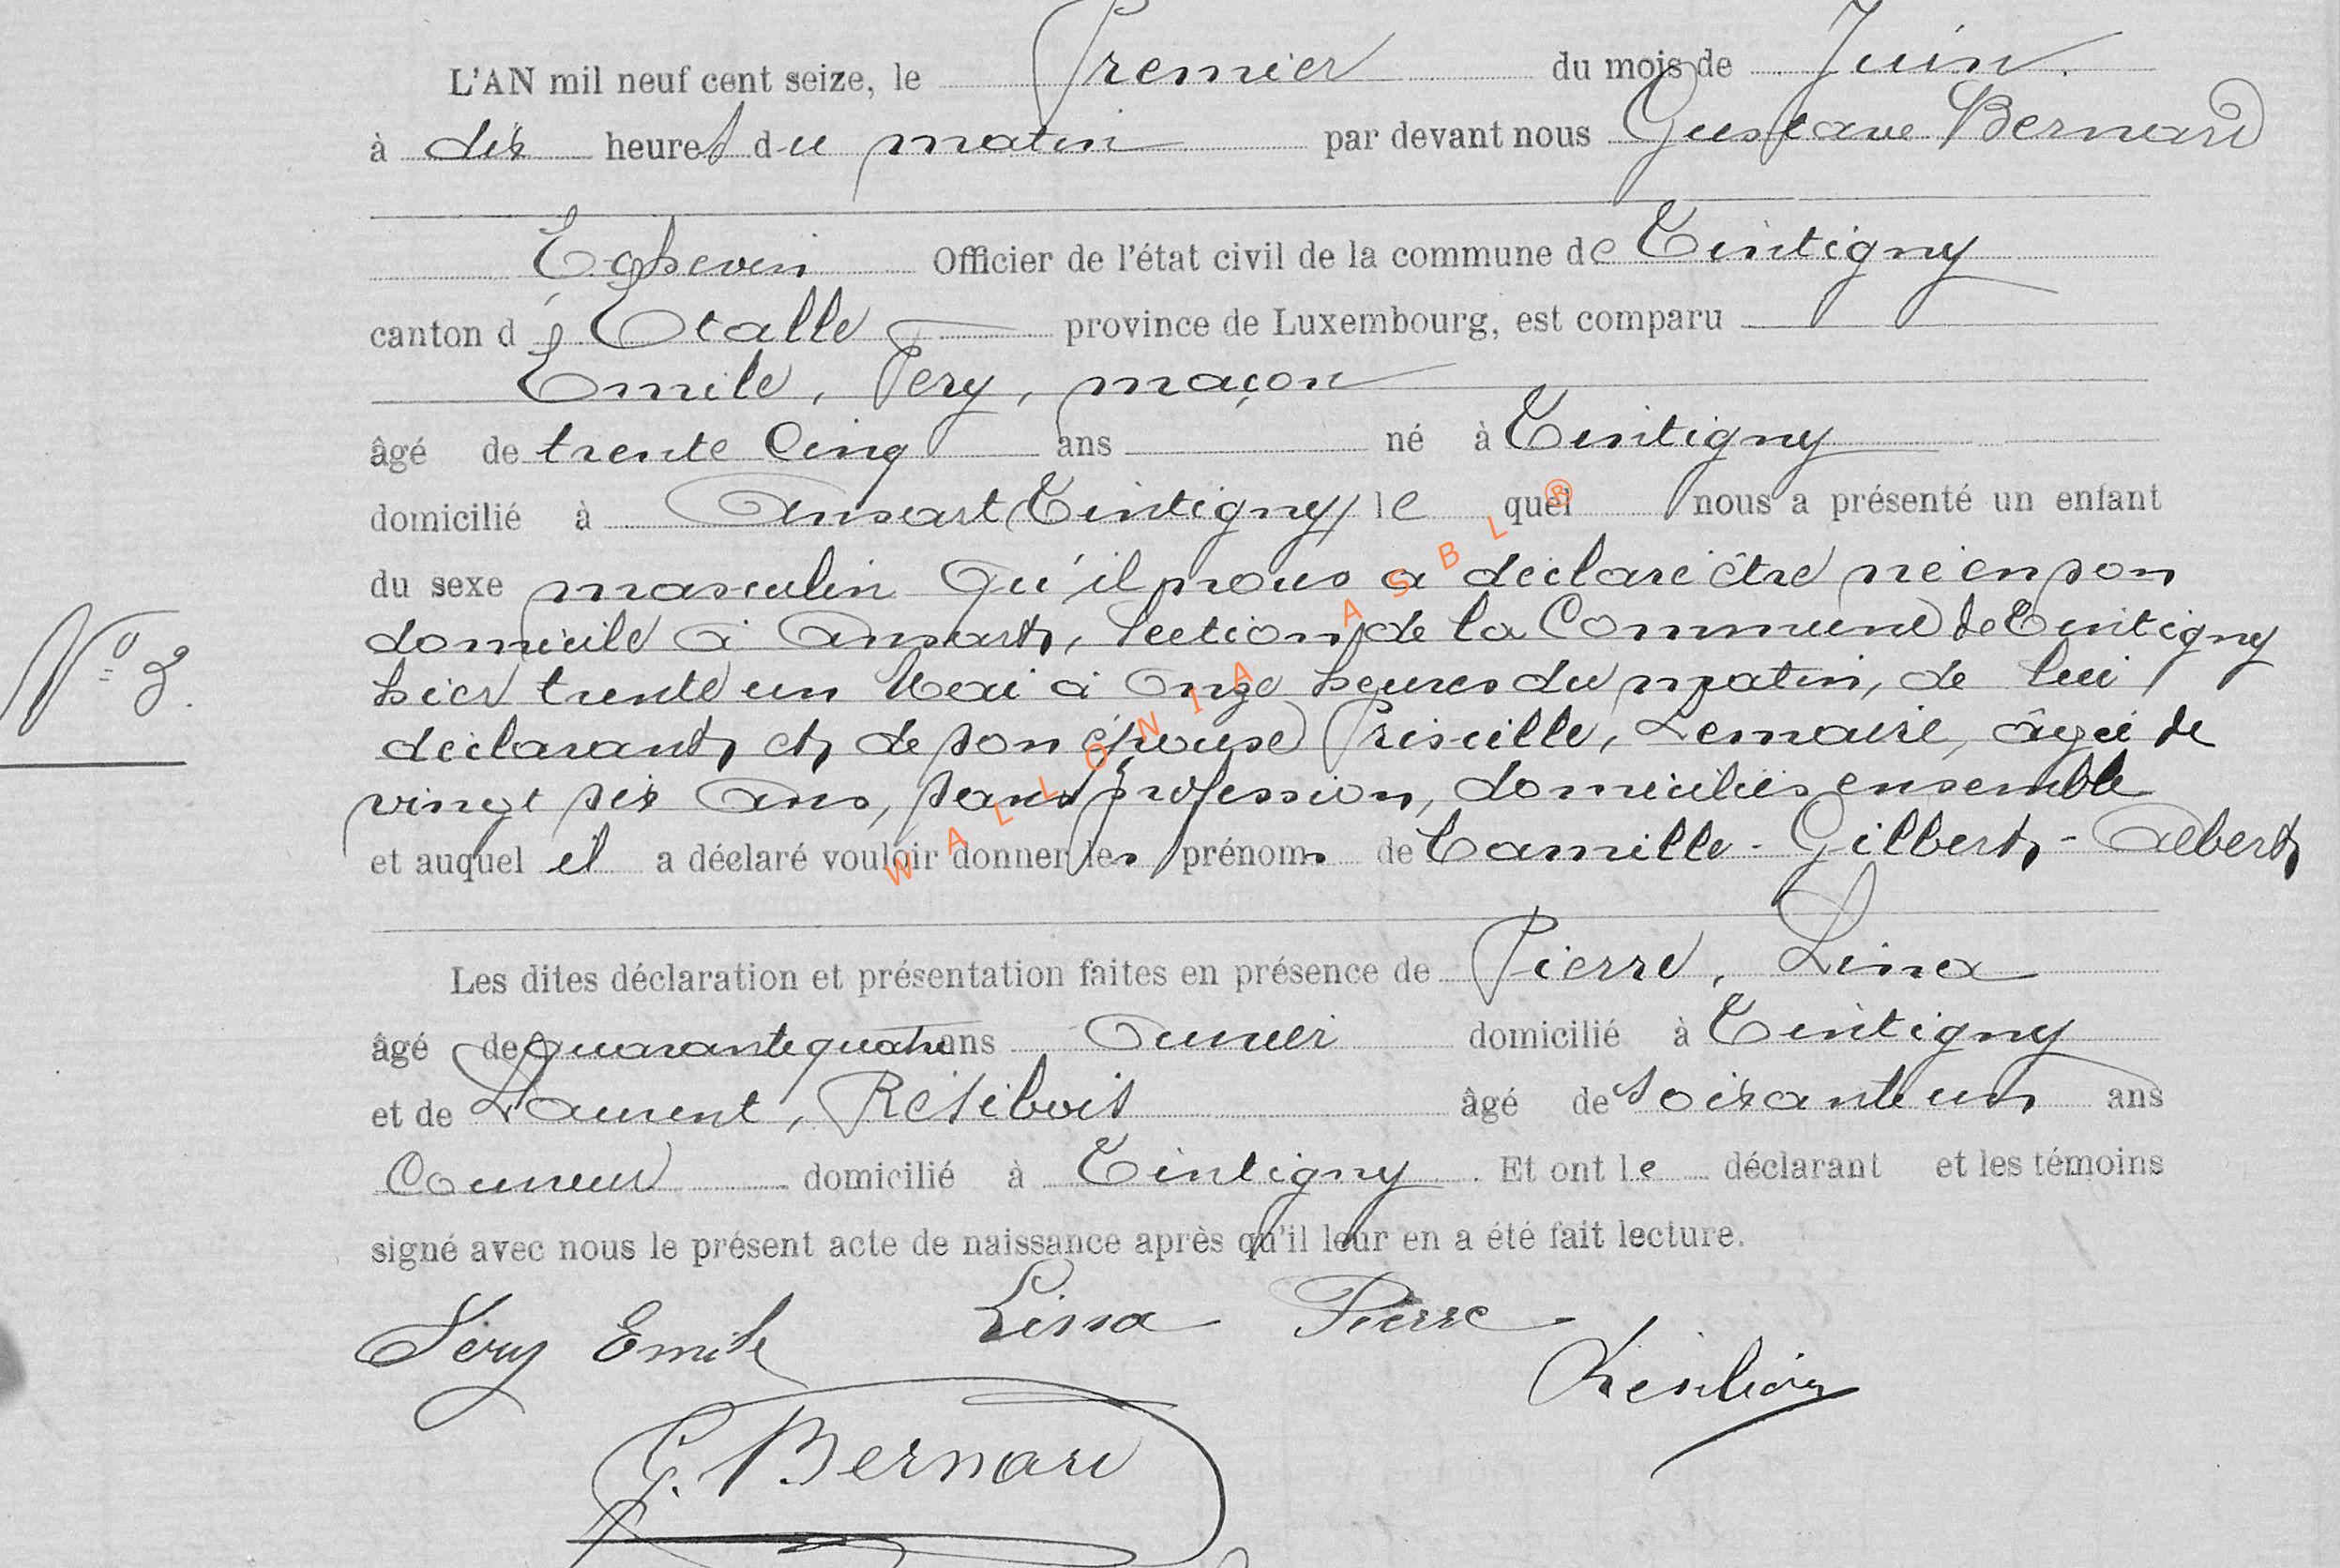 L'AN mil neuf cent seize, le Premier du mois de Juin.
à dix heures du matin par devant nous Gustave Bernard
Echevin Officier de l'état civil de la commune de Tintigny
canton d'Etalle province de Luxembourg, est comparu
Emile, Pery, maçon
âgé de trente cinq ans né à Tintigny
domicilié à Ansart (Tintigny) le quel nous a présenté un enfant
du sexe masculin qu'il nous a déclaré être né en son
domicile à Ansart, section de la Commune de Tintigny
hier trente un Mai à onze heures du matin, de lui
N° 3.
déclarant, et, de son épouse Priscille, Lemaire, âgée de
vingt six ans, sans profession, domiciliés ensemble
et auquel il a déclaré vouloir donner les prénoms de Camille - Gilbert, - Albert,
Les dites déclaration et présentation faites en présence de Pierre, Lina
âgé de quarante quatre ans domicilié à Tintigny
et de Laurent, Résibois âgé de soixante un ans
domicilié à Tintigny. Et ont le déclarant et les témoins
signé avec nous le présent acte de naissance après qu'il leur en a été fait lecture.
Emile Lina Pierre
G. Bernard
WALLONIA ASBL ®